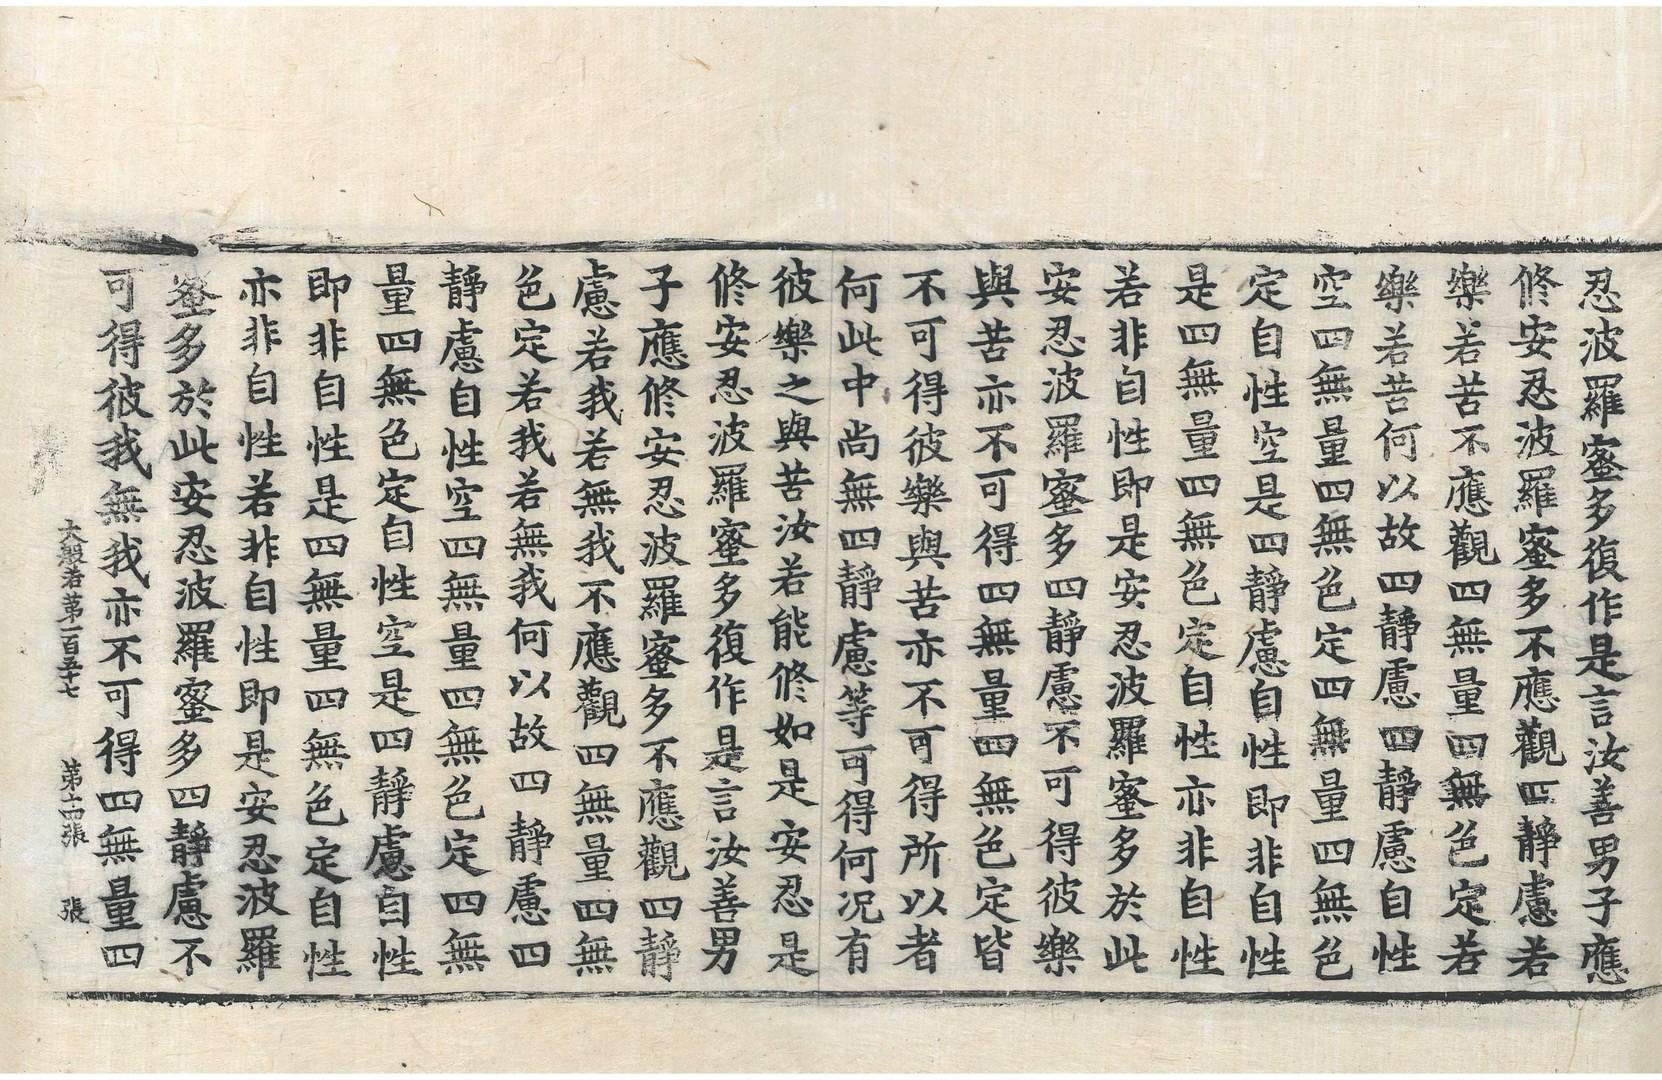 忍波羅蜜多復作是言汝善男子應
修安忍波羅蜜多不應觀四靜慮若
樂若苦不應觀四無量四無色定若
樂若苦何以故四靜慮四靜慮自性
空四無量四無色定四無量四無色
定自性空是四靜慮自性即非自性
是四無量四無色定自性亦非自性
若非自性即是安忍波羅蜜多於此
安忍波羅蜜多四靜慮不可得彼樂
與苦亦不可得四無量四無色定皆
不可得彼樂與苦亦不可得所以者
何此中尚無四靜慮等可得何況有
彼樂之與苦汝若能修如是安忍是
修安忍波羅蜜多復作是言汝善男
子應修安忍波羅蜜多不應觀四靜
慮若我若無我不應觀四無量四無
色定若我若無我何以故四靜慮四
靜慮自性空四無量四無色定四無
量四無色定自性空是四靜慮自性
即非自性是四無量四無色定自性
亦非自性若非自性即是安忍波羅
蜜多於此安忍波羅蜜多四靜慮不
可得彼我無我亦不可得四無量四
大般若第一百五十七 第十四張 張